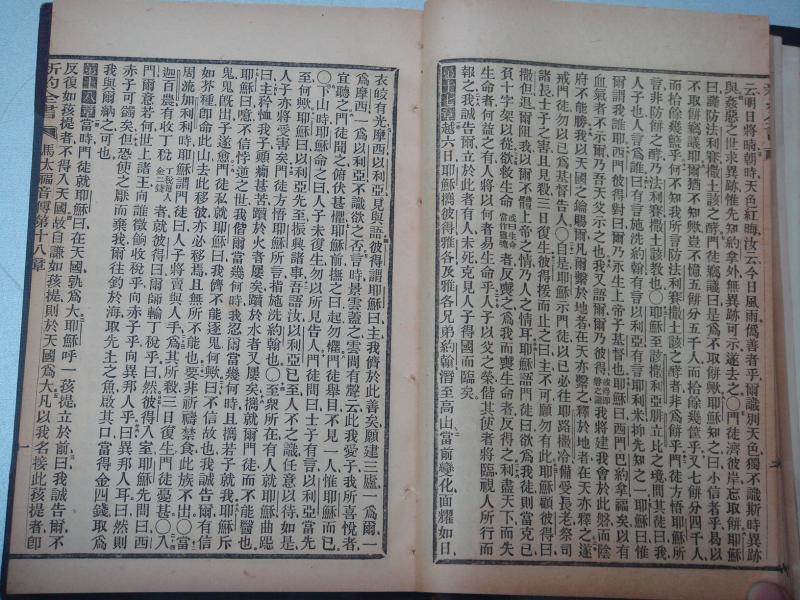 云明日將晴朝時天色紅晦汝云今日風雨僞善者乎爾識別天色獨不識斯時異跡
與姦惡之世求異跡惟先知約拿外無異跡可示遂去之〇門徒濟彼岸忘取餅耶穌
曰謹防法利賽撒土該之酵門徒竊議曰是爲不取餅歟耶穌知之曰小信者乎易以
不取餅竊議耶爾猶不知歟豈不憶五餅分五千人而拾餘幾籃乎又七餅分四千人
而拾餘幾籃乎何不知我所言防法利賽撒土該之酵者非爲餅乎門徒方悟耶穌所
言非防餅之酵乃法利賽撒土該教也〇耶穌至該撒利亞腓立比之境間其徒曰我
人子也人言爲誰曰有言施洗約翰有言以利亞有言耶利米抑先知之一耶穌曰惟
爾謂我誰耶西門彼得對曰爾乃永生上帝子基督也耶穌曰西門巴約拿福矣以非
血氣者示爾乃吾天父示之也我又語爾爾乃彼得彼得即磐之義我將建我會於此磐而陰
府不能勝我以天國之鑰賜爾凡爾繫於地者在天亦繫之釋於地者在天亦釋之遂
戒門徒勿以己爲基督告人〇自是耶穌示門徒以己必往耶路撒冷備受長老祭司
諸長士子之害且見殺三日復生彼得援而止之曰主不可願勿有此耶穌顧彼得曰
撒但退爾阻我以爾不體上帝之情乃人之情耳耶穌語門徒曰欲爲我徒則當克己
負十字架以從欲救生命或曰生命當作靈魂者反喪之爲我而喪生命者反得之利盡天下而失
生命者何益之有人將以何者易生命乎人子以父之榮偕其使者將臨視人所行而
報之我誠告爾立於此者有人未死克見人子得國而臨矣
第十七章越六日耶穌攜彼得雅各及雅各兄弟約翰潛至高山當前變化面耀如日
衣皎有光摩西以利亞見與語彼得謂耶穌曰主我儕於此善矣願建三廬一爲爾一
爲摩西一爲以利亞不識欲之否言時景雲蓋之雲間有聲云此我愛子我所喜悅者
宜聽之門徒聞之俯伏甚懼耶穌前撫之曰起勿懼門徒舉目不見一人惟耶穌而已
〇下山時耶穌命之曰人子未復生勿以所見告人門徒問曰士子有言以利亞當先
至何歟耶穌曰以利亞先至振興諸事吾語汝以利亞已至人不之識任意以待如是
人子亦將受害矣門徒方悟耶穌所言指施洗約翰也〇至衆所在有人就耶穌曲跽
曰主矜恤我子癲癇甚苦躓於火者屢矣躓於水者又屢矣攜就爾門徒而不能醫也
耶穌曰噫不信悖逆之世我偕爾當幾何時我忍爾當幾何時且攜若子就我耶穌斥
鬼鬼旣出子遂愈門徒私就耶穌曰我儕不能逐鬼何歟曰不信故也我誠告爾有信
如芥種卽命此山去此移彼亦必移焉且無所不能也要非祈禱禁食此族不出〇當
周流加利利時耶穌謂門徒曰人子將賣與人手爲其所殺三日復生門徒憂甚〇入
迦百農有收丁稅者就彼得曰爾師輸丁稅乎曰然彼得入室耶穌先問曰西
門爾意若何世上諸王向誰徵餉收稅乎向赤子乎向異邦人乎曰異邦人耳曰然則
赤子可蠲矣但恐使之厭而棄我爾往釣於海取先上之魚啟其口當得金四錢取爲
我與爾納之可也
第十八章當時門徒就耶穌曰在天國孰爲大耶穌呼一孩提立於前曰我誠告爾不
反復如孩提者不得入天國故自謙如孩提則於天國爲大凡以我名接此孩提者卽
新約全書 馬太福音傳第十八章